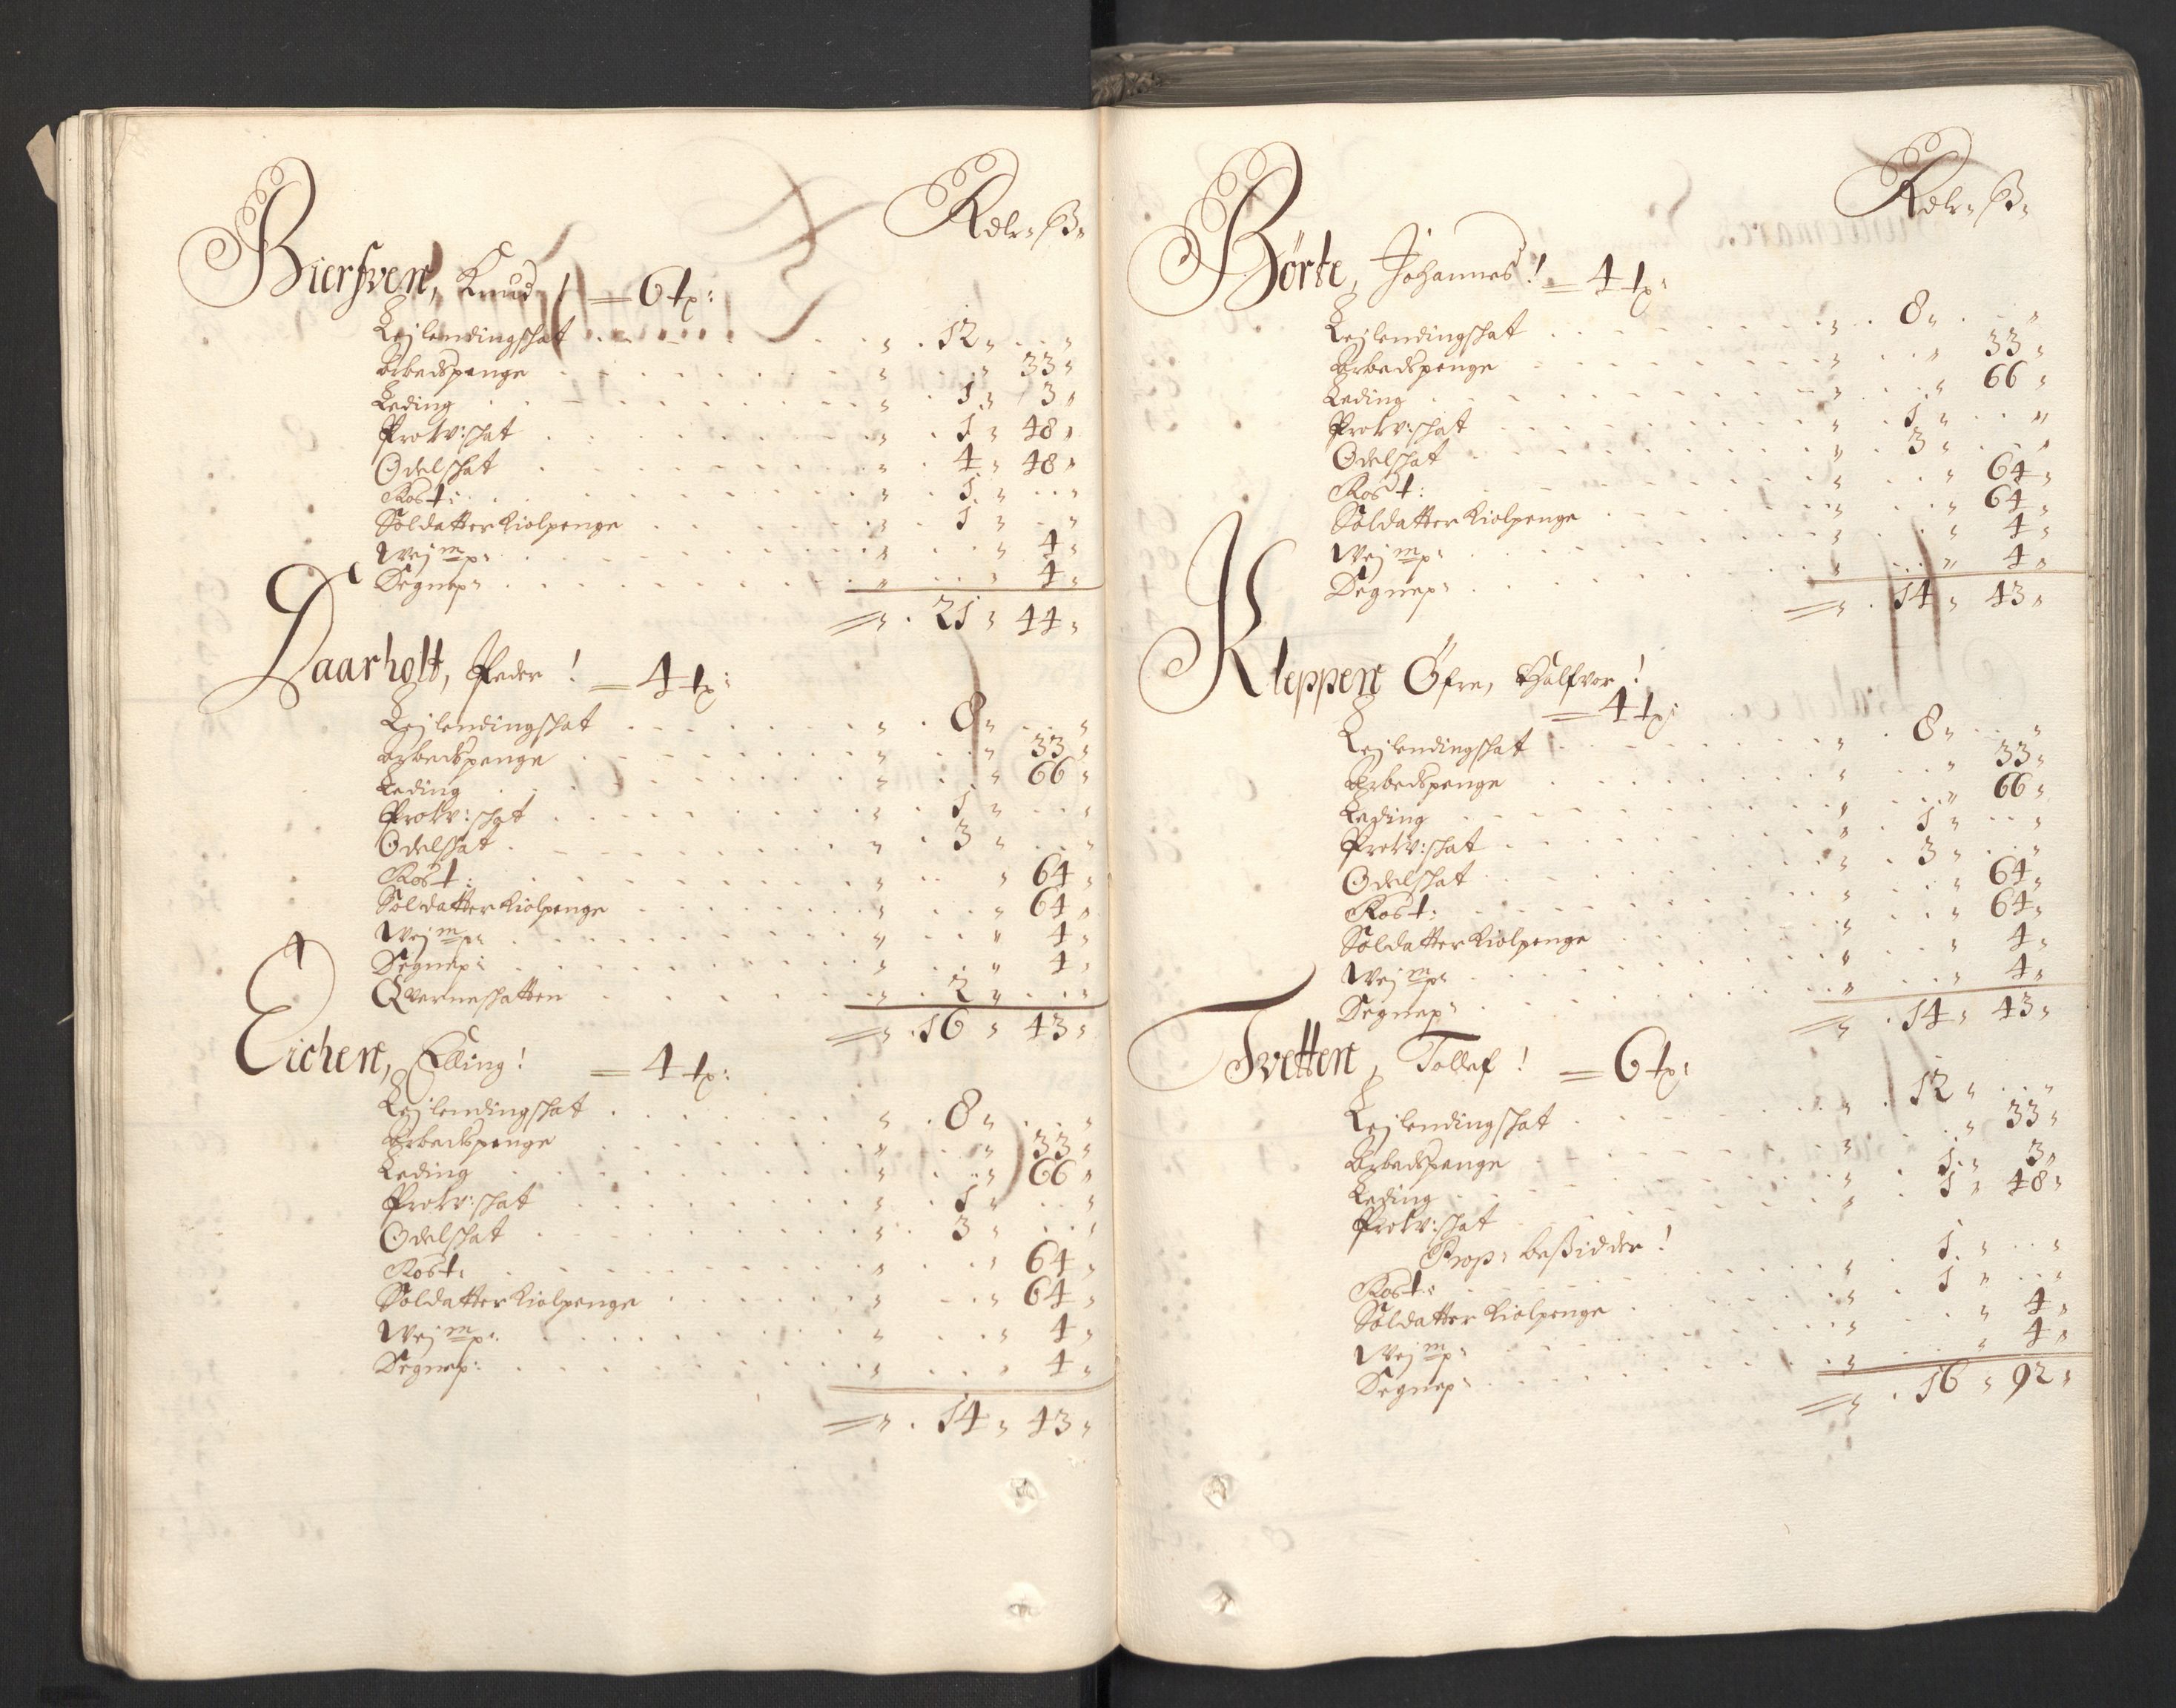 Rdlr: ß:
Bierfven, Knud! = 6 tp:
Leilendingschat " 12 " "
Arbedspenge " " 33 "
Leding " 1 " 3 "
Prokv:schat " 1 " 48 "
Odelschat " 4 " 48 "
Rost: " 1 " "
Soldatter Kiolpenge " 1 " "
Wej mp: " " 4 "
Degnep: " " 4 "
= " 21 " 44 "
Daarholt, Peder! = 4 tp:
Leilendingschat " 8 " "
Arbedspenge " " 33 "
Leding " " 66 "
Prokv:schat " 1 " "
Odelschat " 3 " "
Rost: " " 64 "
Soldatter Kiolpenge " " 64 "
Wej mp: " " 4 "
Degnep: " " 4 "
Qverneschatten " 2 " "
= " 16 " 43 "
Eichen, Elling! = 4 tp:
Leilendingschat " 8 " "
Arbedspenge " " 33 "
Leding " " 66 "
Prokv:schat " 1 " "
Odelschat " 3 " "
Rost: " " 64 "
Soldatter Kiolpenge " " 64 "
Wej mp: " " 4 "
Degnep: " " 4 "
= " 14 " 43 "
Rdlr: ß:
Börte, Johannes! = 4 tp:
Leilendingschat " 8 " "
Arbedspenge " " 33 "
Leding " " 66 "
Prokv:schat " 1 " "
Odelschat " 3 " "
Rost: " " 64 "
Soldatter Kiolpenge " " 64 "
Wej mp: " " 4 "
Degnep: " " 4 "
= " 14 " 43 "
Kleppen Öfre, Halfvor!
= 4 tp:
Leilendingschat " 8 " "
Arbedspenge " " 33 "
Leding " " 66 "
Prokv:schat " 1 " "
Odelschat " 3 " "
Rost: " " 64 "
Soldatter Kiolpenge " " 64 "
Wej mp: " " 4 "
Degnep: " " 4 "
= " 14 " 43 "
Tvetten, Tollef! = 6 tp:
Leilendingschat " 12 " "
Arbedspenge " " 33 "
Leding " 1 " 3 "
Prokv:schat " 1 " 48 "
Prop: beßidder!
Rost: " 1 " "
Soldatter Kiolpenge " 1 " "
Wej mp: " " 4 "
Degnep: " " 4 "
= " 16 " 92 "